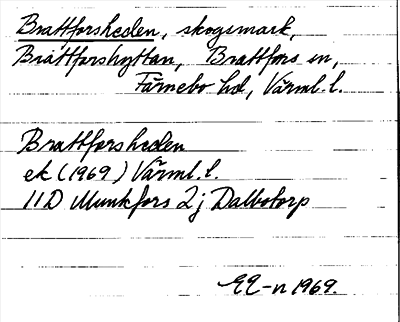 Brattforsheden, skogsmark,
Brattforshyttan, Brattfors sn,
Färnebo hd, Värml. l.
Brattforsheden
ek (1969) Värml. l.
11D Munkfors 2j Dalbotorp
1969.